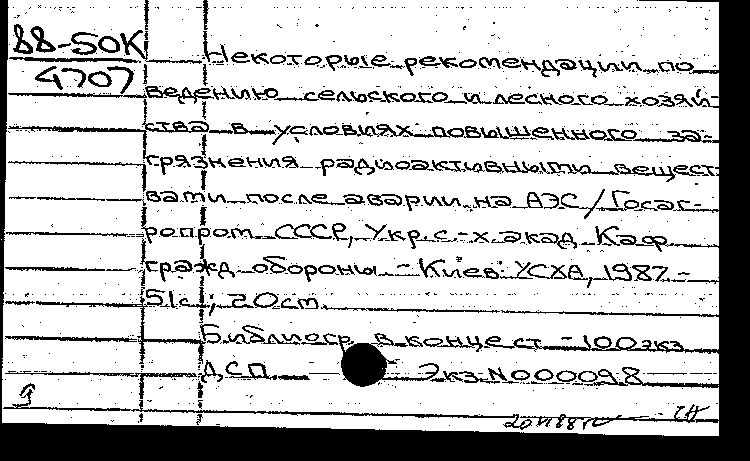 88-50К
4707
Некоторые рекомендации по
ведению сельского и лесного хозяй-
ства в условиях повышенного за-
грязнения радиоактивными вещест
вами после аварии на АЭС / Госаг-
ропром СССР, Укр. с.-х. акад. Каф.
гражд. обороны. - Киев: УСХА, 1987. -
51с.; 20 см.
Библиогр. в конце ст. - 100 экз.
ДСП Экз. N000098
9